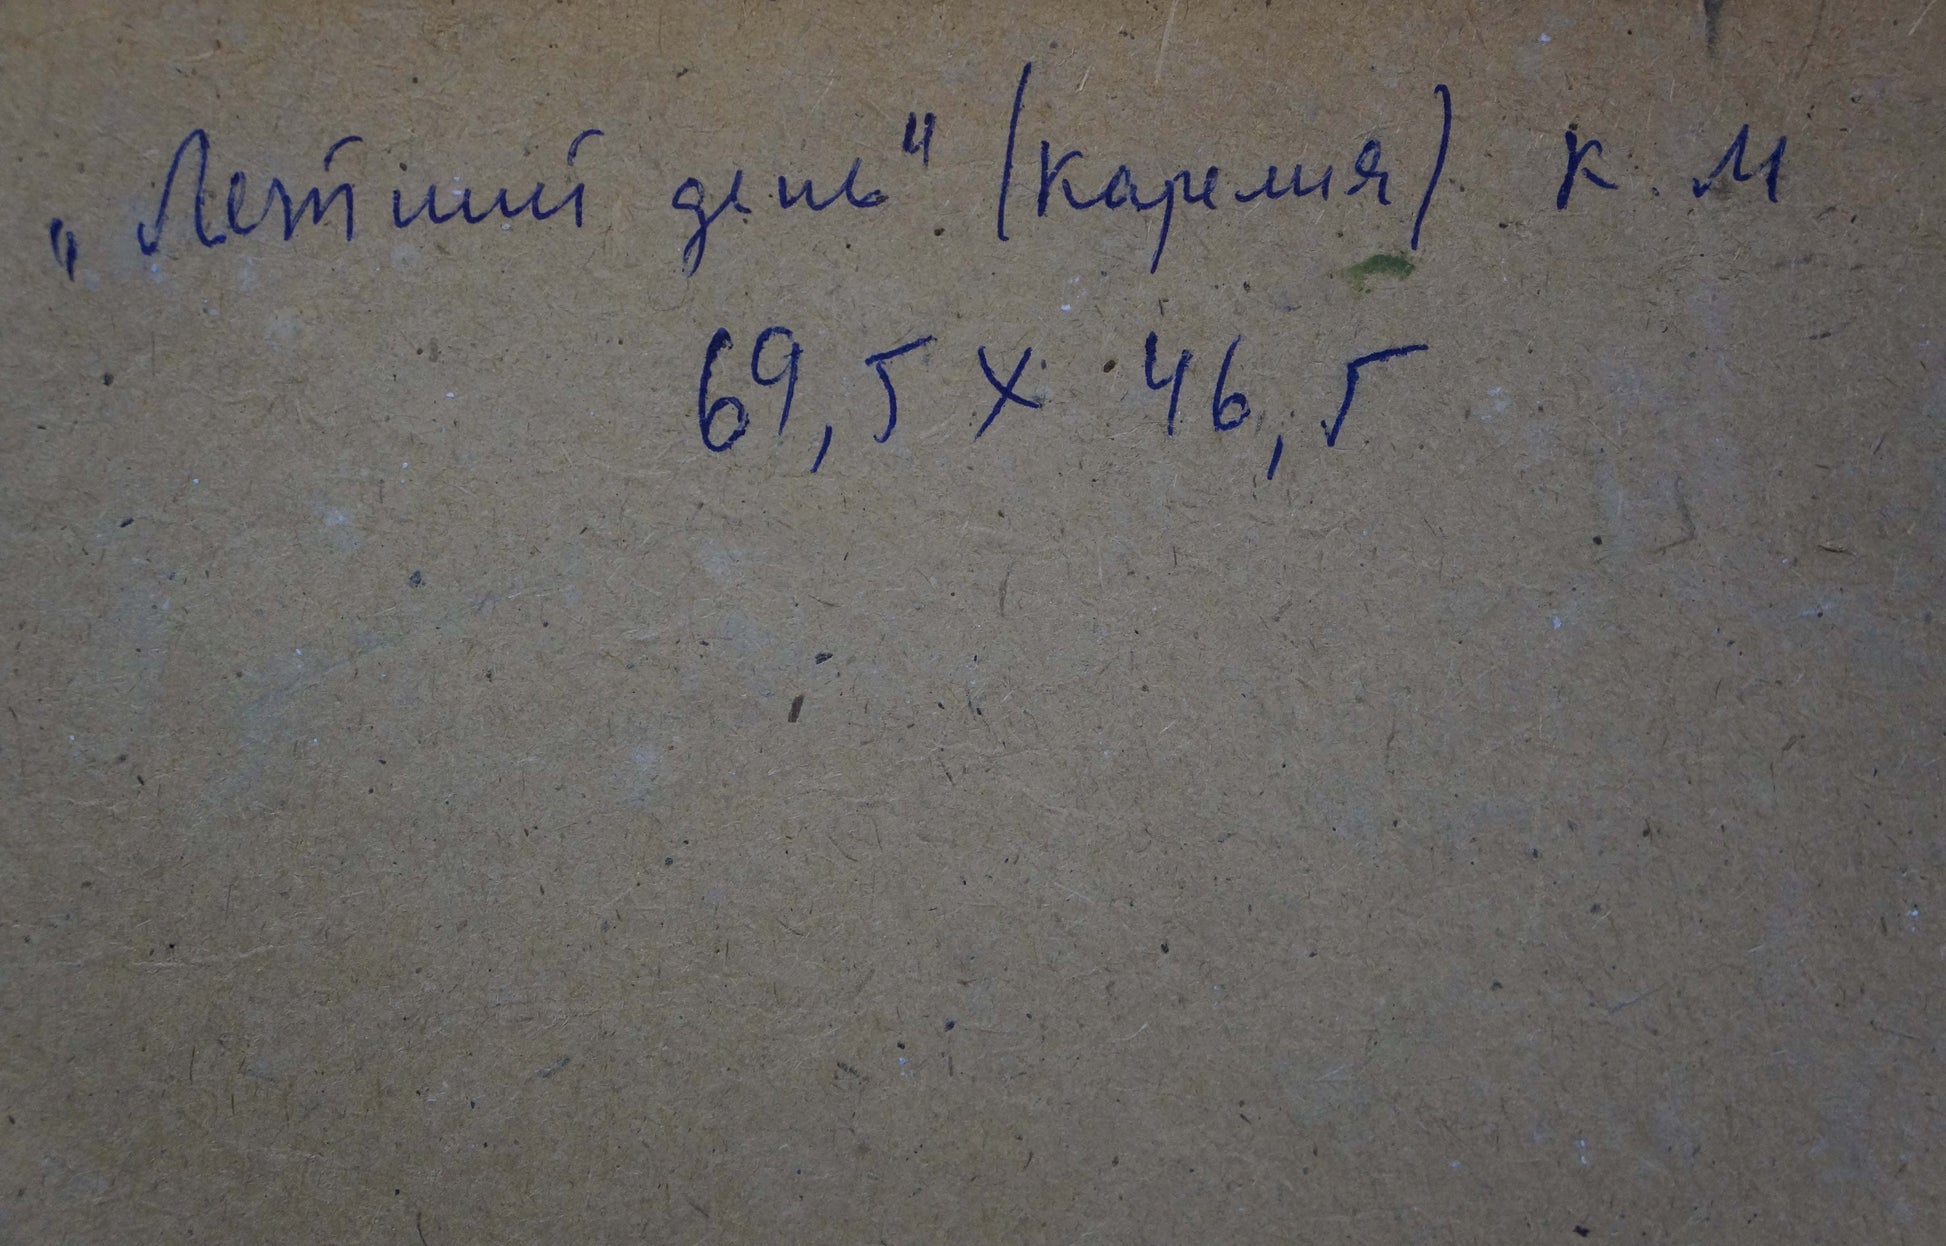 „Летний день" (Карелия) к. м
69,5 х 46,5